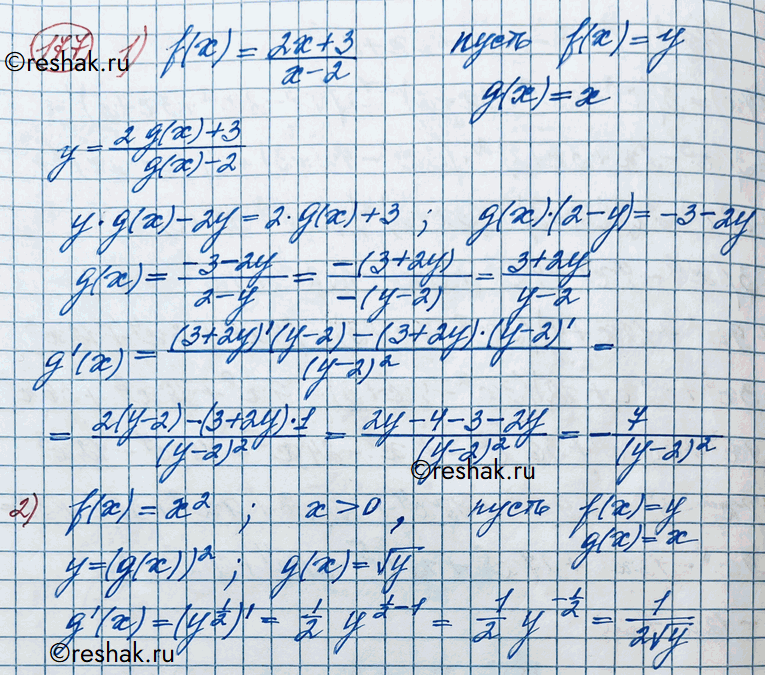 177 1) f(x) = (2x+3)/(x-2) пусть f(x) = y
©reshak.ru
g(x) = x
y = (2 g(x)+3)/(g(x)-2)
y · g(x) - 2y = 2 · g(x) + 3 ; g(x)·(2-y) = -3-2y
g(x) = (-3-2y)/(2-y) = (-(3+2y))/(-(y-2)) = (3+2y)/(y-2)
g'(x) = ((3+2y)'(y-2) - (3+2y)·(y-2)')/(y-2)² =
= (2(y-2)-(3+2y)·1)/(y-2)² = (2y-4-3-2y)/(y-2)² = -7/(y-2)²
©reshak.ru
2) f(x) = x² ; x > 0 , пусть f(x) = y
g(x) = x
y = (g(x))² ; g(x) = √y
g'(x) = (y^(1/2))' = 1/2 y^(1/2-1) = 1/2 y^(-1/2) = 1/(2√y)
©reshak.ru